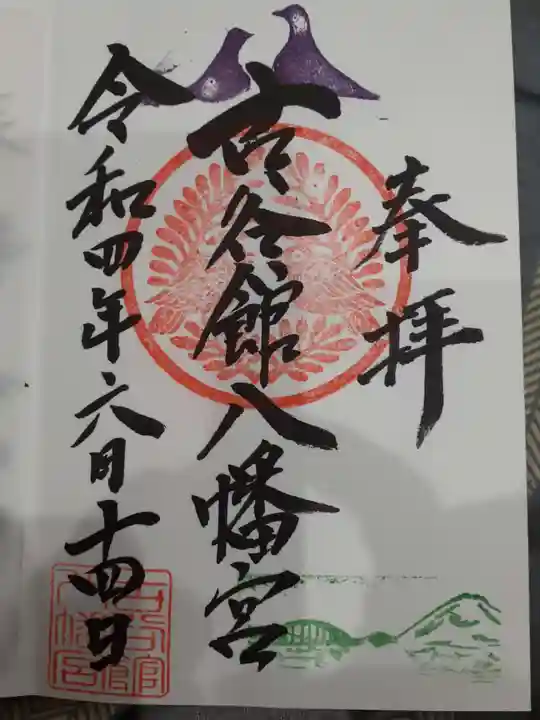 奉拝
古谷館八幡宮
令和四年六月十四日
古谷館八幡宮